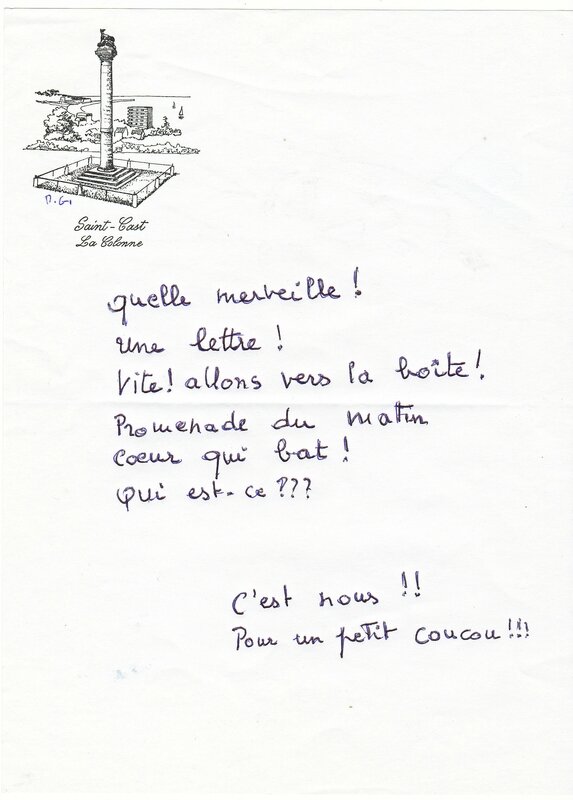 D.G.
Saint-Cast
La Colonne
quelle merveille !
une lettre !
Vite! allons vers la boîte!
Promenade du matin
Coeur qui bat !
Qui est-ce ???
C'est nous !!
Pour un petit coucou !!!